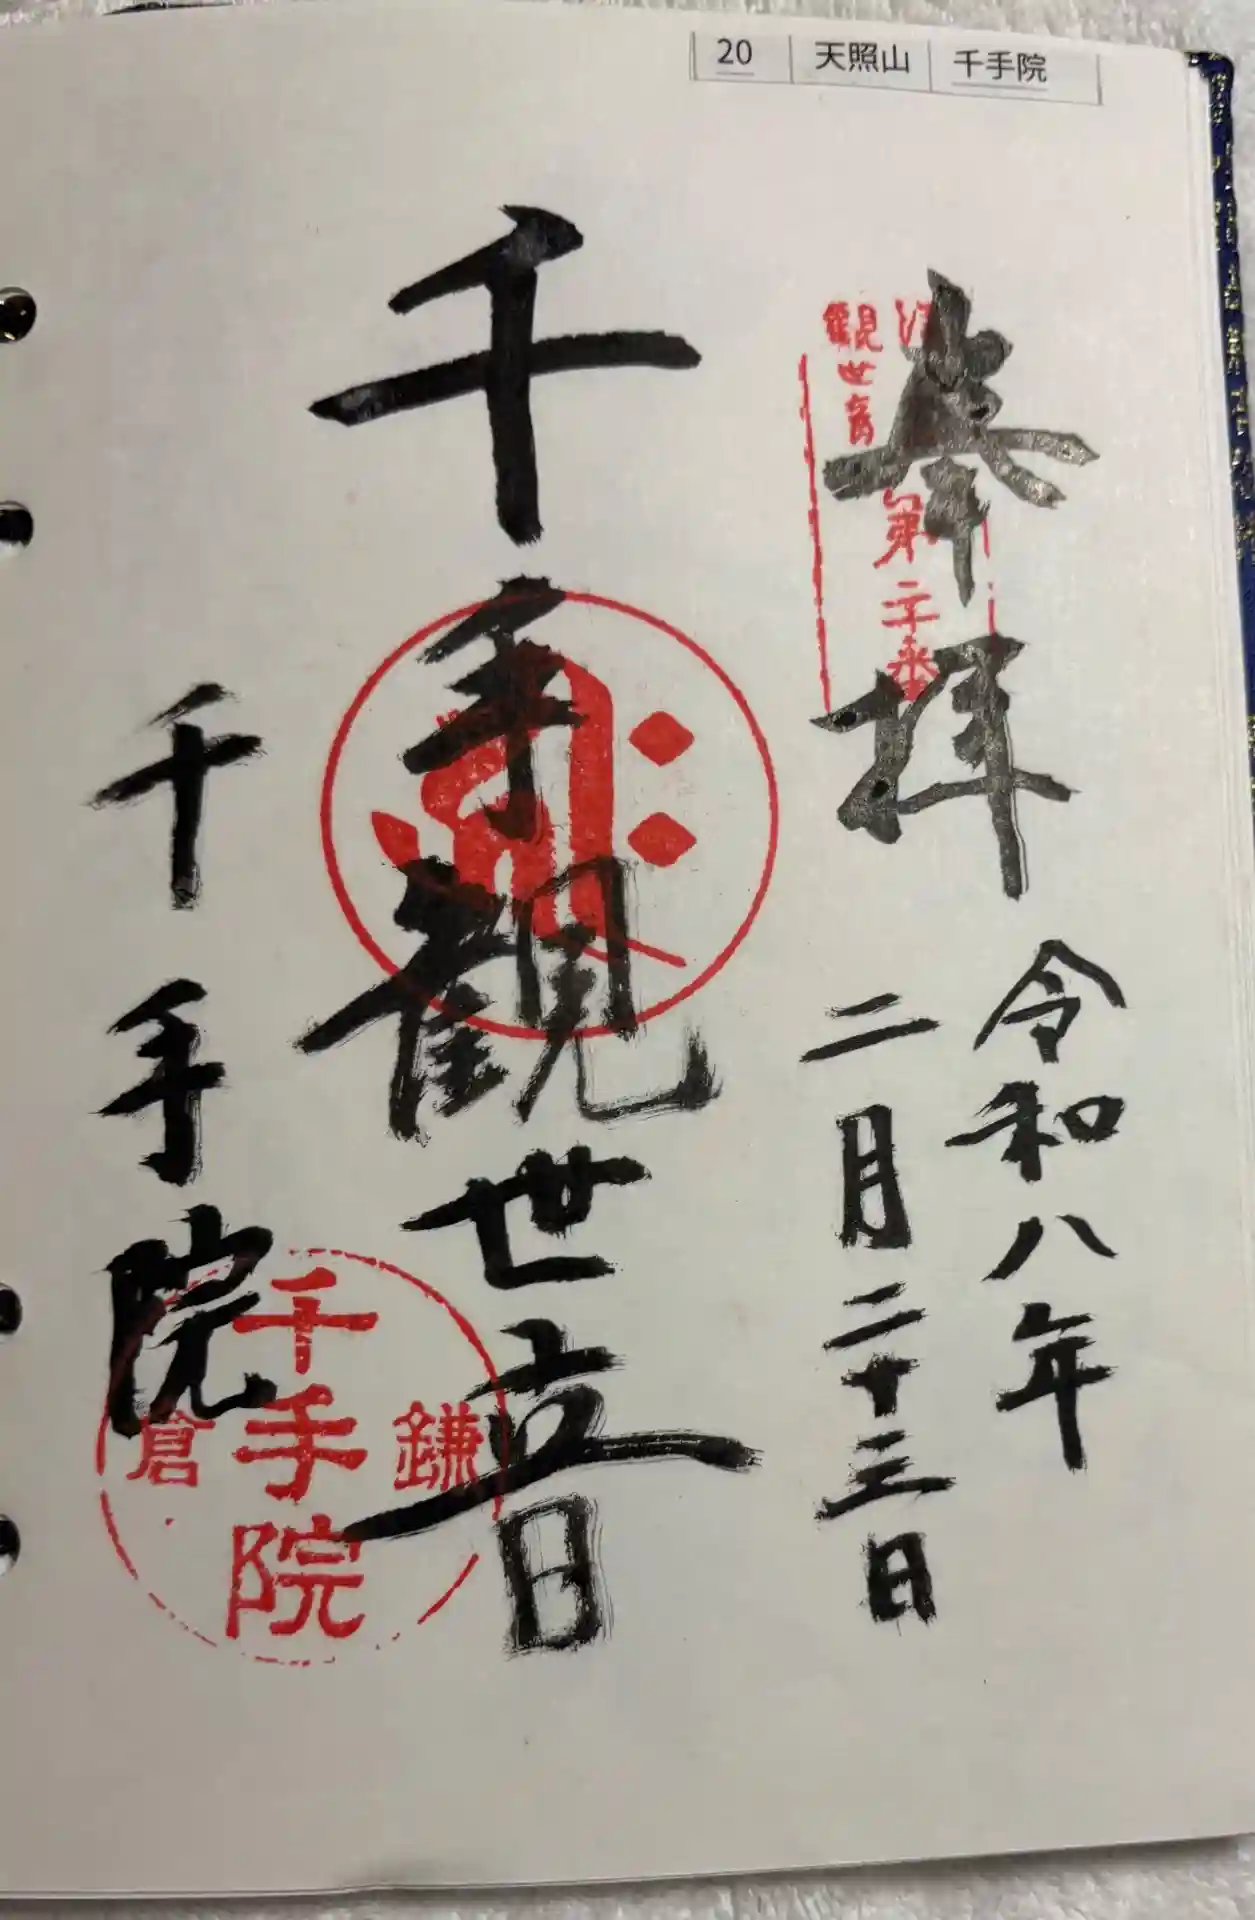 20 天照山 千手院
奉拝
令和八年
二月二十三日
観世音
第二十番
千手観世音
千手院
鎌倉
千手院